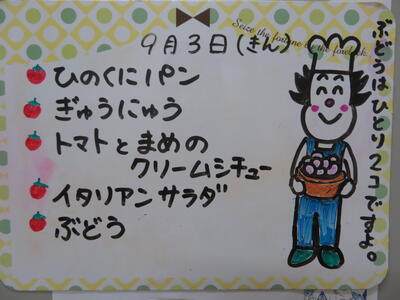 Seize the fortune by the forelock.
9月3日(きん)
ひのくにパン
ぎゅうにゅう
トマトとまめの
クリームシチュー
イタリアンサラダ
ぶどう
ぶどうはひとり2コですよ。